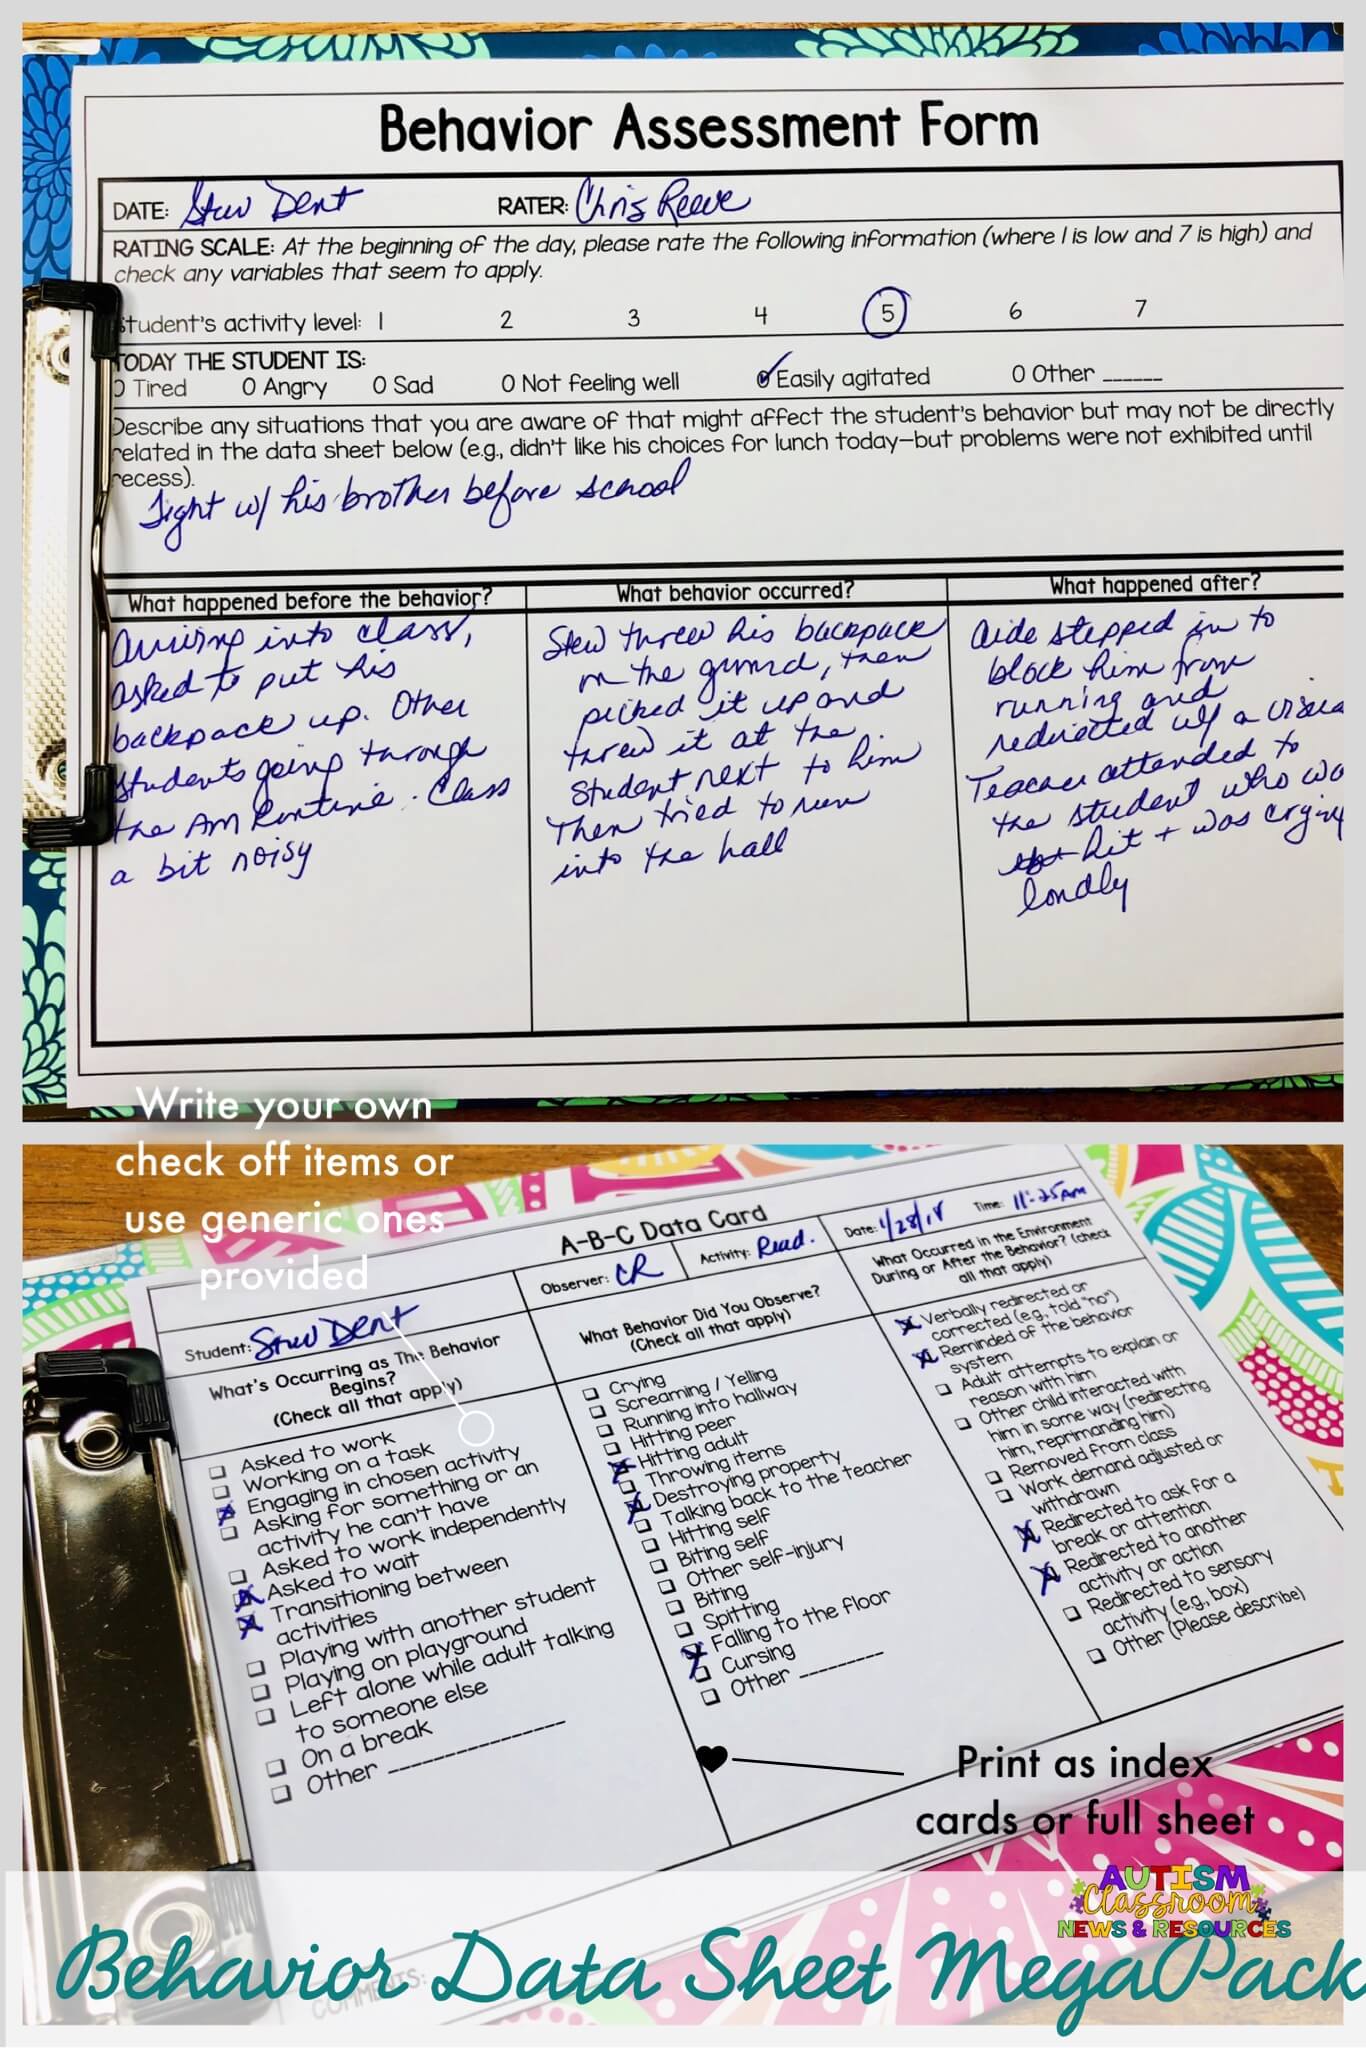 Behavior Assessment Form
DATE: Stew Dent RATER: Chris Reeve
RATING SCALE: At the beginning of the day, please rate the following information (where 1 is low and 7 is high) and
check any variables that seem to apply.
Student's activity level: 1 2 3 4 5 6 7
TODAY THE STUDENT IS:
O Tired O Angry O Sad O Not feeling well O Easily agitated O Other ______
Describe any situations that you are aware of that might affect the student's behavior but may not be directly
related in the data sheet below (e.g., didn't like his choices for lunch today—but problems were not exhibited until
recess).
Fight w/ his brother before school
What happened before the behavior?
Arriving into class,
asked to put his
backpack up. Other
students going through
the AM Routine. Class
a bit noisy
What behavior occurred?
Stew threw his backpack
on the ground, then
picked it up and
threw it at the
student next to him
Then tried to run
into the hall
What happened after?
Aide stepped in to
block him from
running and
redirected w/ a visua
Teacher attended to
the student who wa
hit + was crying
loudly
Write your own
check off items or
use generic ones
provided
A-B-C Data Card
Student: Stew Dent
Observer: CR Activity: Read. Date: 1/28/18 Time: 11:25 AM
What's Occurring as The Behavior
Begins?
(Check all that apply)
Asked to work
Working on a task
Engaging in chosen activity
Asking for something or an
activity he can't have
Asked to work independently
Asked to wait
Transitioning between
activities
Playing with another student
Playing on playground
Left alone while adult talking
to someone else
On a break
Other ______________
What Behavior Did You Observe?
(Check all that apply)
Crying
Screaming / Yelling
Running into hallway
Hitting peer
Hitting adult
Throwing items
Destroying property
Talking back to the teacher
Hitting self
Biting self
Other self-injury
Biting
Spitting
Falling to the floor
Cursing
Other ________
What Occurred in the Environment
During or After the Behavior? (check
all that apply)
Verbally redirected or
corrected (e.g., told "no")
Reminded of the behavior
system
Adult attempts to explain or
reason with him
Other child interacted with
him in some way (redirecting
him, reprimanding him)
Removed from class
Work demand adjusted or
withdrawn
Redirected to ask for a
break or attention
Redirected to another
activity or action
Redirected to sensory
activity (e.g., box)
Other (Please describe)
Print as index
cards or full sheet
COMMENTS:
AUTISM
Classroom
NEWS & RESOURCES
Behavior Data Sheet MegaPack